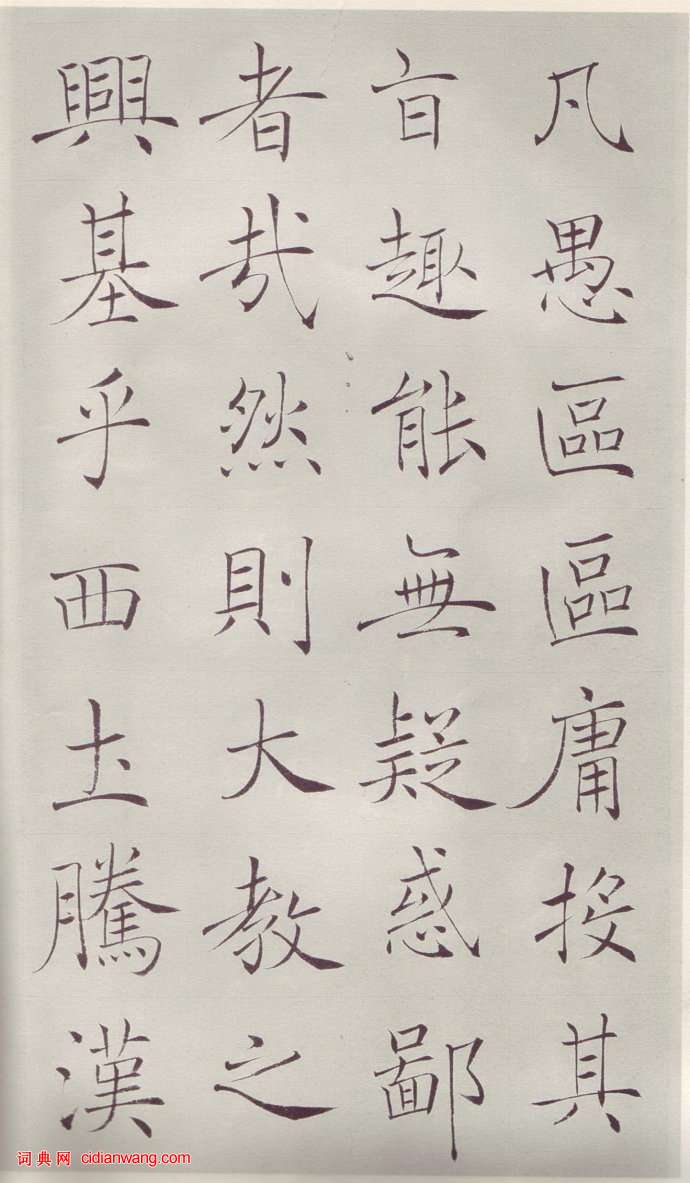 凡愚區區庸投其
旨趣能無疑惑鄙
者哉然則大教之
興基乎西土騰漢
词典网 cidianwang.com